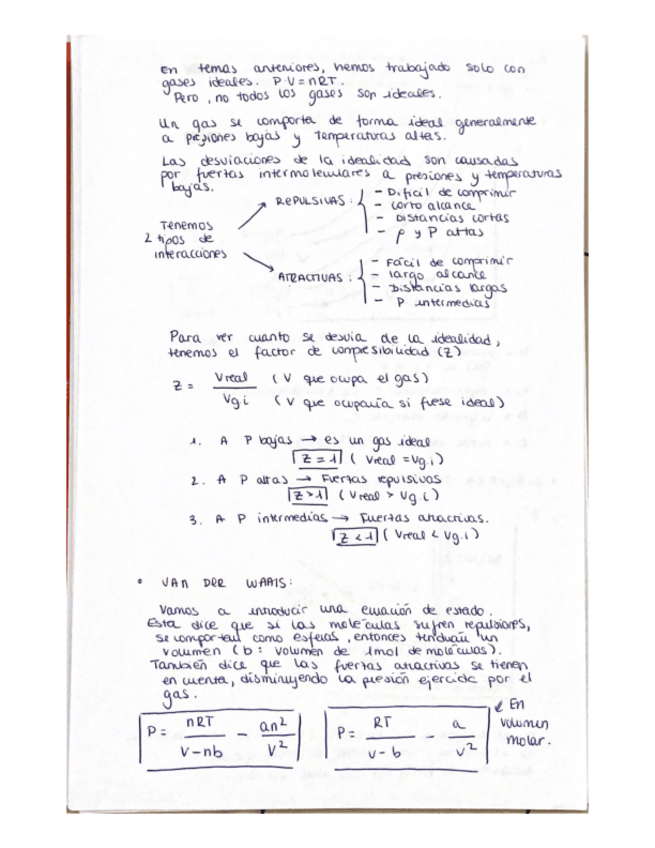 En temas anteriores, hemos trabajado solo con
gases ideales. P·V=nRT.
Pero, no todos los gases son ideales.
Un gas se comporta de forma ideal generalmente
a presiones bajas y temperaturas altas.
Las desviaciones de la idealidad son causadas
por fuertas intermoleculares a presiones y temperaturas
bajas.
Tenemos
2 tipos de
interacciones
REPULSIVAS:
- Dificil de comprimir
- corto alcance
- Distancias cortas
- ρ y P altas
ATRACTIVAS:
- Fácil de comprimir
- largo alcance
- Distancias largas
- P intermedias
Para ver cuanto se desvia de la idealidad,
tenemos el factor de compresibilidad (Z)
Z = Vreal / Vg.i
(V que ocupa el gas)
(V que ocuparía si fuese ideal)
1. A P bajas → es un gas ideal
Z = 1 (Vreal = Vg.i)
2. A P altas → Fuertas repulsivas
Z > 1 (Vreal > Vg.i)
3. A P intermedias → Fuertas atractivas.
Z < 1 (Vreal < Vg.i)
• VAN DER WAALS:
Vamos a introducir una ecuación de estado.
Esta dice que si las moléculas sufren repulsiones,
se comportan como esferas, entonces tendrían un
volumen (b: volumen de 1mol de moléculas).
También dice que las fuertas atractivas se tienen
en cuenta, disminuyendo la presión ejercida por el
gas.
P = nRT / V-nb - an² / V²
P = RT / v-b - a / v²
En
volumen
molar.